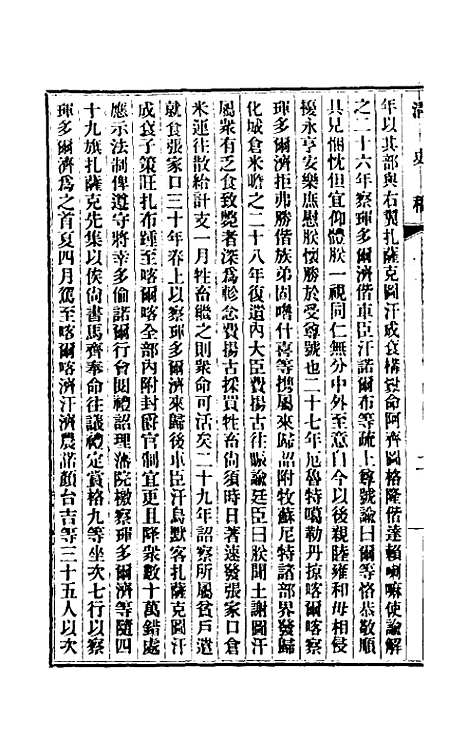 清史稿
年以其部與右翼扎薩克圖汗成袞構釁命阿齊圖格隆偕達賴喇嘛使諭解
之二十六年察琿多爾濟偕車臣汗諾爾布等疏上尊號諭曰爾等恪恭敬順
具見悃忱但宜仰體朕一視同仁無分中外至意自今以後親睦雍和毋相侵
擾永享安樂庶慰朕懷勝於受尊號也二十七年厄魯特噶勒丹掠喀爾喀察
琿多爾濟拒弗勝偕族弟固嚕什喜等攜屬來歸詔附牧蘇尼特諸部界發歸
化城倉米贍之二十八年復遣內大臣費揚古往賑諭廷臣曰朕聞土謝圖汗
屬衆有乏食致斃者深爲軫念費揚古採買牲畜尙須時日著速發張家口倉
米運往散給計支一月牲畜繼之則衆命可活矣二十九年詔察所屬貧戶遣
就食張家口三十年春上以察琿多爾濟來歸後車臣汗烏默客扎薩克圖汗
成袞子策旺扎布踵至喀爾喀全部內附封爵官制宜更且降衆數十萬錯處
應示法制俾遵守將幸多倫諾爾行會閱禮詔理藩院檄察琿多爾濟等隨四
十九旗扎薩克先集以俟尙書馬齊奉命往議禮定賞格九等坐次七行以察
琿多爾濟爲之首夏四月駕至喀爾喀濟汗濟農諾顏台吉等三十五人以次